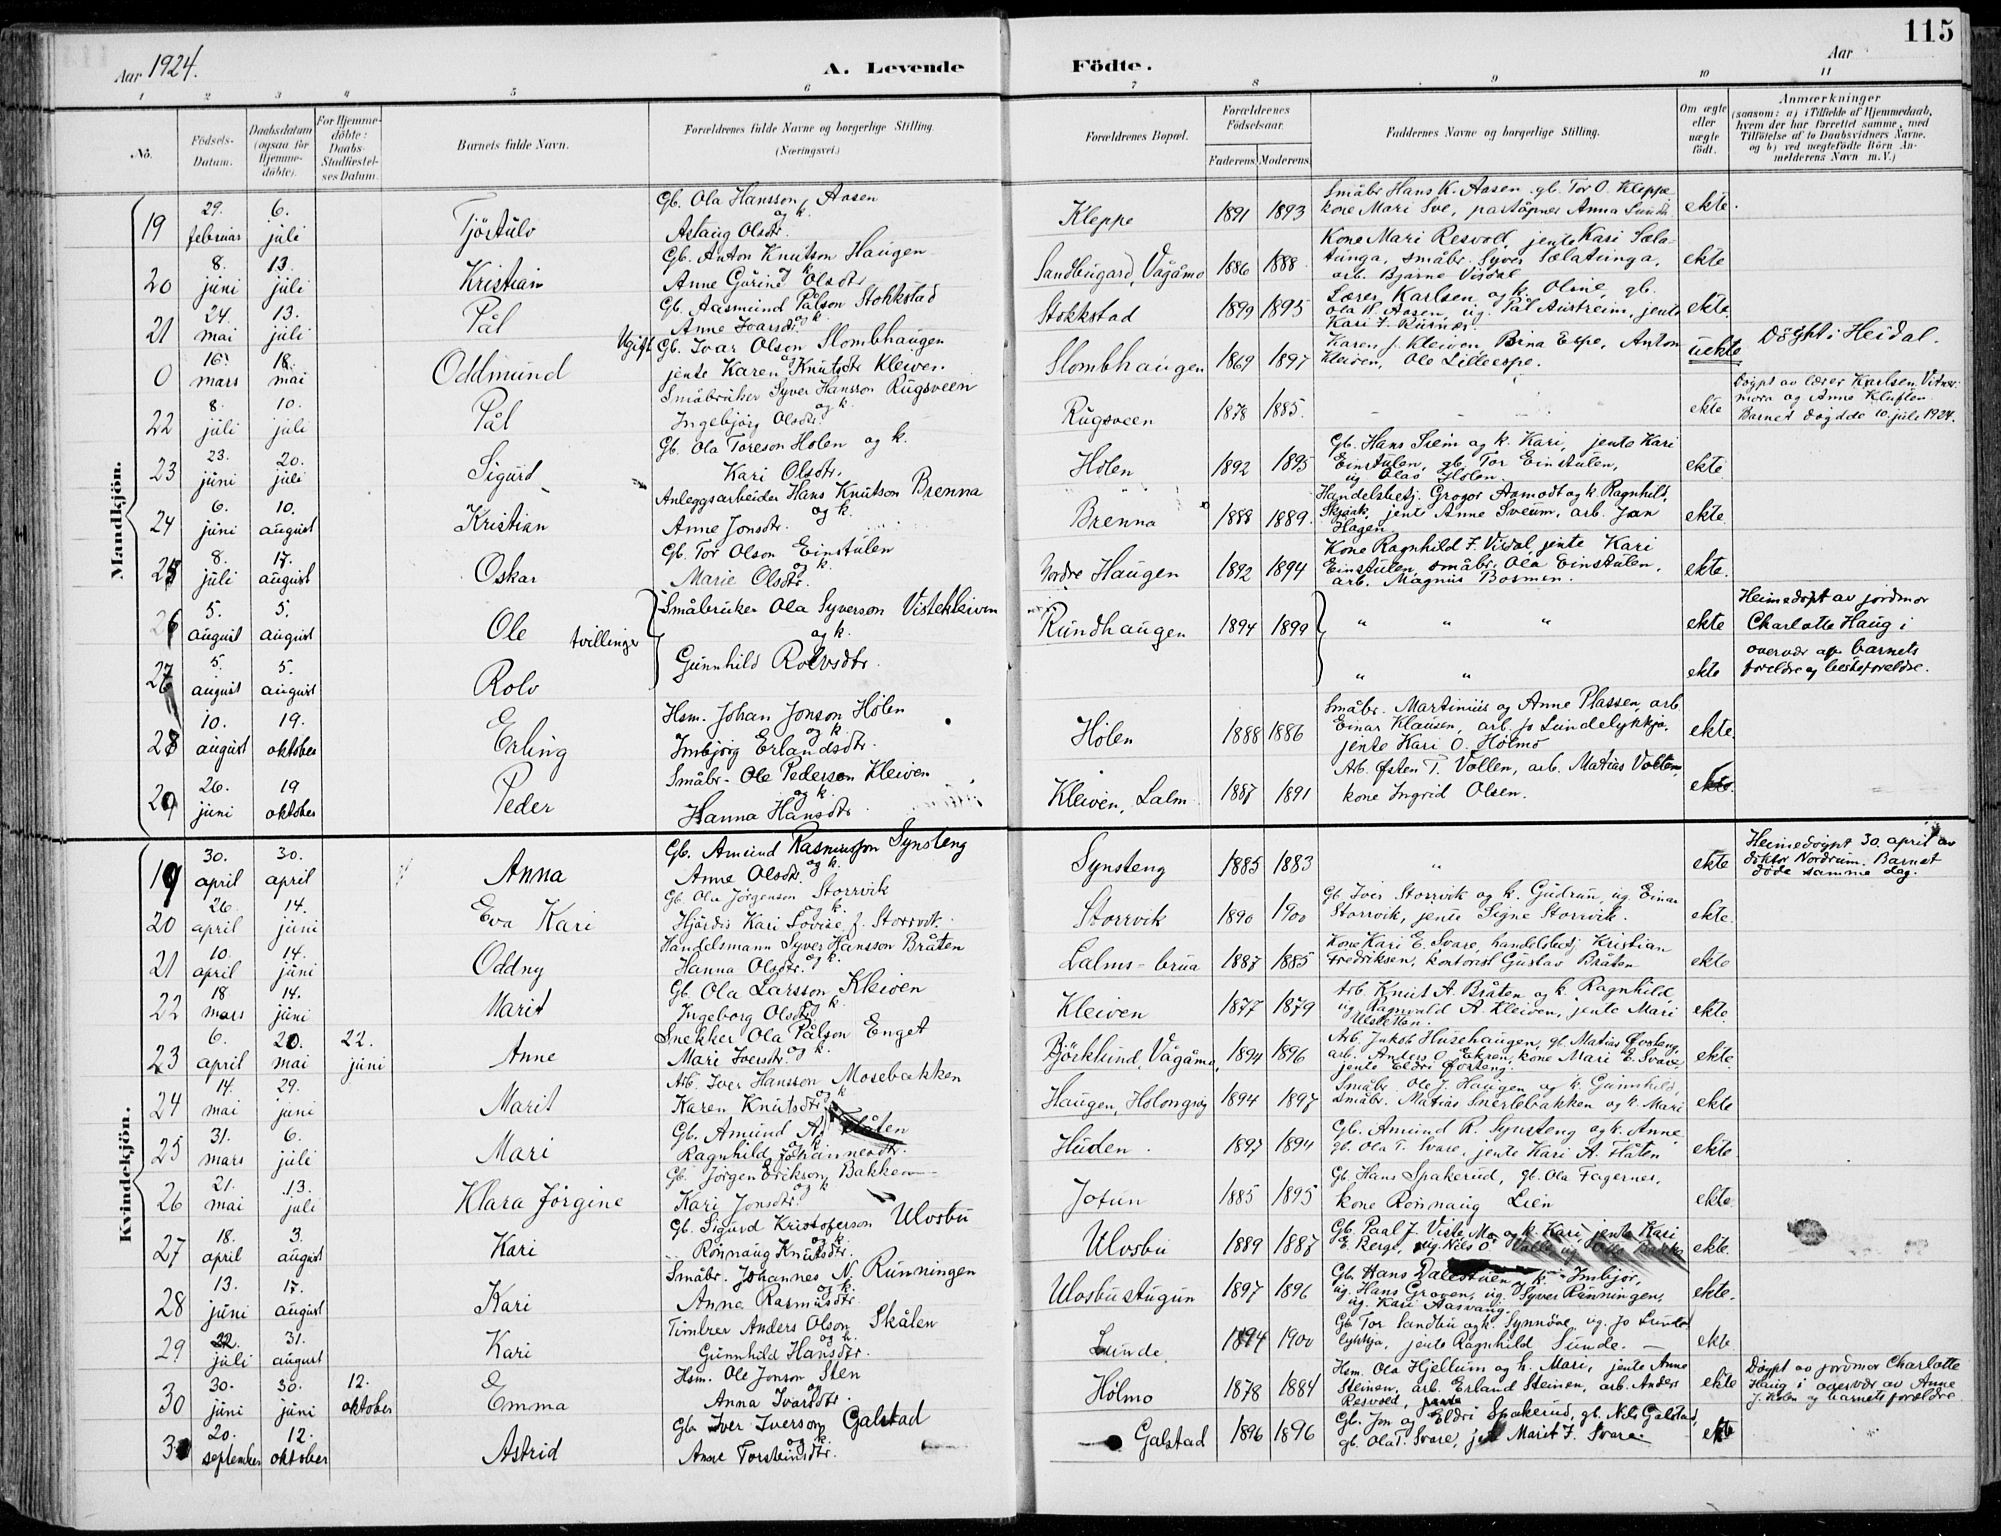 115
Aar 1924.
A. Levende Födte.
Aar
1 2 3 4 5 6 7 8 9 10 11
No.
Födsels-Datum.
Daabsdatum (ogsaa for Hjemme-döbte).
For Hjemme-döbte: Daabs-Stadfæstel-ses Datum.
Barnets fulde Navn.
Forældrenes fulde Navne og borgerlige Stilling. (Næringsvei.)
Forældrenes Bopæl.
Forældrenes Födselsaar.
Faderens. Moderens.
Faddernes Navne og borgerlige Stilling.
Om ægte eller uægte födt.
Anmærkninger
(saasom: a) i Tilfælde af Hjemmedaab, hvem der har forrettet samme, med Tilföielse af to Daabsvidners Navne, og b) ved uægtefödte Börn An-melderens Navn m. V.)
Mandkjön.
19 29. februar 6. juli Tjöstulv Gb. Ola Hansson Aasen og k. Astaug Olsdtr. Kleppe 1891 1893 Småbr Hans K. Aasen, gb. Tor O. Kleppe kone Mari Sve, Anna ekte.
20 8. juni 13. juli Kristian Gb. Anton Knutson Haugen og k. Anne Gurine Olsdtr Sandbugard, Vågåmo 1886 1888 Kone Mari Resvold, jente Kari Sælatunga, småbr. Syver Sælatunga, arb. Bjarne Visdal ekte
21 24. mai 13. juli Pål Gb. Aasmund Pålson Stokkstad og k. Anne Ivarsdtr. Stokkstad 1899 1895 Lærer Karlsen og k. Oline, gb. Ola H. Aasen, ug. Pål Austreim, jente Kari J. ekte.
0 16. mars 18. mai Oddmund Ugift Gb. Ivar Olson Slombhaugen og jente Karen Knutsdtr Kleiven. Slombhaugen 1869 1897 Karen J. Kleiven, Espe, Anton Kleiven, Ole Lilleespe. uekte Döypt i Heidal.
22 8. juli 10. juli Pål Småbruker Syver Hansson Rugsveen og k. Ingebjörg Olsdtr. Rugsveen 1878 1885. ekte Döypt av lærer Karlsen. Vitner: mora og Anne Kluften Barnet döydde 10. juli 1924.
23 23. juni 20. juli Sigurd Gb. Ola Toreson Holen og k. Kari Olsdtr. Holen 1892 1895 Gb. Hans Siem og k. Kari, jente Kari Einstulen, gb. Tor Einstulen, ug Olav Holen. ekte
24 6. juni 10. august Kristian Anleggsarbeider Hans Knutson Brenna og k. Anne Jonsdtr. Brenna 1888 1889. Handelsbetj. Grogor Aamodt og k. Ragnhild, jente Anne Sveum, arb. Jan Hagen ekte
25 8. juli 17. august Oskar Gb. Tor Olson Einstulen og k. Marie Olsdtr. Nordre Haugen 1892 1894 Kone Ragnhild J. Visdal, jente Kari Einstulen, småbr. Ola Einstulen, arb. Magnus Bosmen. ekte.
26 5. august 5. august Ole tvillinger Småbruker Ola Syverson Vistekleiven og k. Gunnhild Rolvsdtr. Rundhaugen 1894 1899 " " " ekte Heimedöpt av jordmor Charlotte Haug i
27 5. august 5. august Rolv " " ekte overvær af barnets foreldre og besteforeldre.
28 10. august 19. oktober Erling Hsm. Johan Jonson Hölen og k Imbjörg Erlandsdtr. Hölen 1888 1886 Småbr. Martinius og Anne Plassen, arb Einar Klausen, arb. Jo Lundelykkja, jente Kari O. Hölmo ekte.
29 26. juni 19 oktober Peder Småbr. Ole Pederson Kleiven og k. Hanna Hansdtr Kleiven, Lalm 1887 1891 Arb. Østen T. Vollen, arb. Matias Vollen, kone Ingrid Olsen. ekte.
Kvindekjön.
19 30. april 30. april Anna Gb. Amund Rasmusson Synsteng og k. Anne Olsdtr. Synsteng 1885 1883 " ekte Heimedöypt 30. april av doktor Nordrum. Barnet döde samme dag.
20 26. april 14. juni Eva Kari Gb. Ola Jörgenson Storrvik og k. Hjördis Kari Lovise f. Storrvik. Storrvik 1890 1900 Gb. Iver Storrvik og k. Gudrun, ug Einar Storrvik, jente Signe Storrvik. ekte.
21 10. april 14. juni Oddny Handelsmann Syver Hansson Bråten og k. Hanna Olsdtr. Lalms-brua 1887 1885 Kone Kari E. Svare, handelsbetj Kristian Fredriksen, kontorist Gustav Bråten ekte
22 18 mars 14. juni Marit Gb. Ola Larsson Kleiven og k Ingeborg Olsdtr Kleiven 1877 1879 Arb. Knut A. Bråten og k. Ragnhild, ug Ragnvald A. Kleiven, jente Mari Ulsletten. ekte.
23 6. april 20. mai 22. juni Anne Snekker Ola Pålson Enget og k. Mari Iversdtr. Björklund, Vågåmo, 1894 1896 Arb. Jakob Husehaugen, gb. Matias Øvsteng, arb. Anders O. Ekren, kone Mari E. Svare, jente Eldri Øvsteng. ekte.
24 14. mai 29. juni Marit Arb. Iver Hansson Mosebakken og k Karen Knutsdtr Haugen, Holongsög 1894 1897 Småbr. Ole J. Haugen og k. Gunnhild, småbr. Matias Snerlebakken og k. Mari ekte
25 31. mars 6. juli Mari Gb. Amund A. Flåten og k Ragnhild Johannesdtr. Huden. 1897 1894 Gb. Amund R. Synsteng og k. Anne, gb. Ola T. Svare, jente Kari A. Flåten ekte.
26 21. mai 13. juli Klara Jörgine Gb. Jörgen Erikson Bakken og k Kari Jonsdtr. Jotun 1885 1895 Gb. Hans Spakerud, gb. Ola Fagernes, kone Rönnaug Lien ekte
27 18. april 3. august Kari Gb. Sigurd Kristoferson Ulvsbu og k. Rönnaug Knutsdtr. Ulvsbu 1889 1887 Gb. Paal J. Viste, Mo, og k. Kari, jente Kari E. Berge, ug. Nils O. ekte.
28 13. juni 17. august Kari Småbr. Johannes N. Runningen og k. Anne Rasmusdtr Ulvsbustugun 1897 1896 Gb. Hans Dalestuen og k. Imbjör, ug. Hans Graven, ug. Syver Runningen, ug. Kari Aasvang. ekte.
29 22. juli 31. august Kari Timbrer Anders Olson Skålen og k. Gunnhild Hansdtr. Lunde 1894 1900 Gb. Tor Sandbu og k. Synnöve, ug. Jo Lundelykkja, jente Ragnhild Sunde. ekte
30 30. juni 30. juni 12. oktober Emma Hsm. Ole Jonson Sten og k. Anna Ivarsdtr. Hölmo 1878 1884 Hsm. Ola Hjellum og k. Mari, jente Anne Steinen, arb. Erland Steinen, arb. Anders Resvold, ekte Döypt av jordmor Charlotte Haug i overvær av Anne J. Holen og barnets foreldre
31 20. september 12. oktober Astrid Gb. Iver Iverson Galstad og k. Anne Torsteinsdtr. Galstad 1896 1896 Gb. Jon og Eldri Spakerud, gb. Nils Galstad, gb. Ola T. Svare, jente Marit J. Svare. ekte